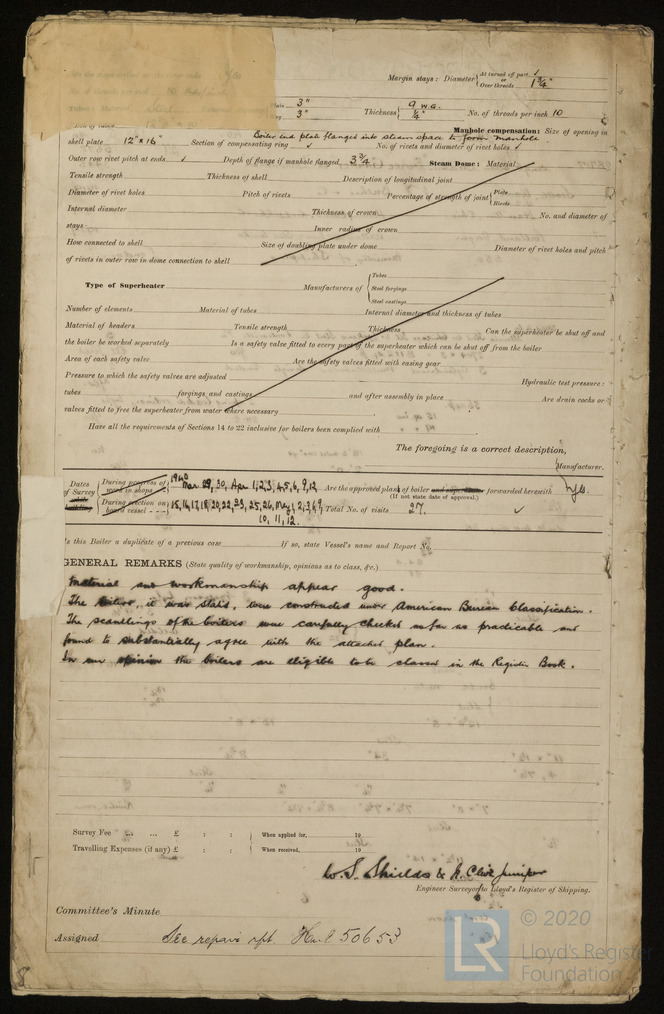 Margin stays: Diameter { At turned off part ✓ or Over threads 1 3/4"
3" Thickness 9 W.G. No. of threads per inch 10
3" 1/4"
Boiler end plate flanged into steam space to form manhole
Manhole compensation: Size of opening in
shell plate 12" x 16" Section of compensating ring ✓ No. of rivets and diameter of rivet holes ✓
Outer row rivet pitch at ends ✓ Depth of flange if manhole flanged 3 3/4 Steam Dome: Material
Tensile strength Thickness of shell Description of longitudinal joint
Diameter of rivet holes Pitch of rivets Percentage of strength of joint { Plate Rivets
Internal diameter Thickness of crown No. and diameter of
stays Inner radius of crown
How connected to shell Size of doubling plate under dome Diameter of rivet holes and pitch
of rivets in outer row in dome connection to shell
Type of Superheater Manufacturers of { Tubes Steel forgings Steel castings
Number of elements Material of tubes Internal diameter and thickness of tubes
Material of headers Tensile strength Thickness Can the superheater be shut off and
the boiler be worked separately Is a safety valve fitted to every part of the superheater which can be shut off from the boiler
Area of each safety valve Are the safety valves fitted with easing gear
Pressure to which the safety valves are adjusted Hydraulic test pressure:
tubes forgings and castings and after assembly in place Are drain cocks or
valves fitted to free the superheater from water where necessary
Have all the requirements of Sections 14 to 22 inclusive for boilers been complied with
The foregoing is a correct description,
Manufacturer.
Dates of Survey { During progress of work in shops 1940 Mar 29, 30, Apr 1, 2, 3, 4, 5, 6, 9, 12 Are the approved plans of boiler and superheater forwarded herewith Yes.
(If not state date of approval.)
During erection on board vessel 15, 16, 17, 18, 20, 22, 23, 25, 26, May 1, 2, 3, 6, 9, Total No. of visits 27. ✓
10, 11, 12.
Is this Boiler a duplicate of a previous case If so, state Vessel's name and Report No.
GENERAL REMARKS (State quality of workmanship, opinions as to class, &c.)
Material and workmanship appear good.
The boilers, it was stated, were constructed under American Bureau Classification.
The scantlings of the boilers were carefully checked as far as practicable and
found to substantially agree with the attached plan.
In our opinion the boilers are eligible to be classed in the Register Book.
Survey Fee £ : : When applied for, 19
Travelling Expenses (if any) £ : : When received, 19
W. S. Shields & Clive Juniper
Engineer Surveyor to Lloyd's Register of Shipping.
Committee's Minute
Assigned See repair rpt. Hul 50653
© 2020
Lloyd's Register
Foundation
LR